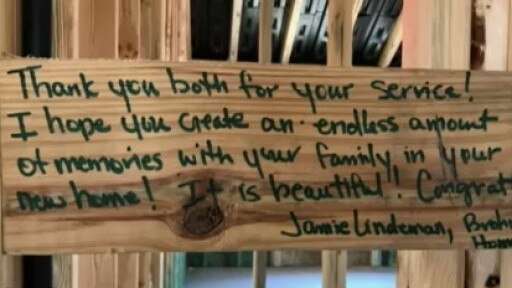 Thank you both for your service!
I hope you create an endless amount
of memories with your family in your
new home! It is beautiful! Congrat
Jamie Lindeman,